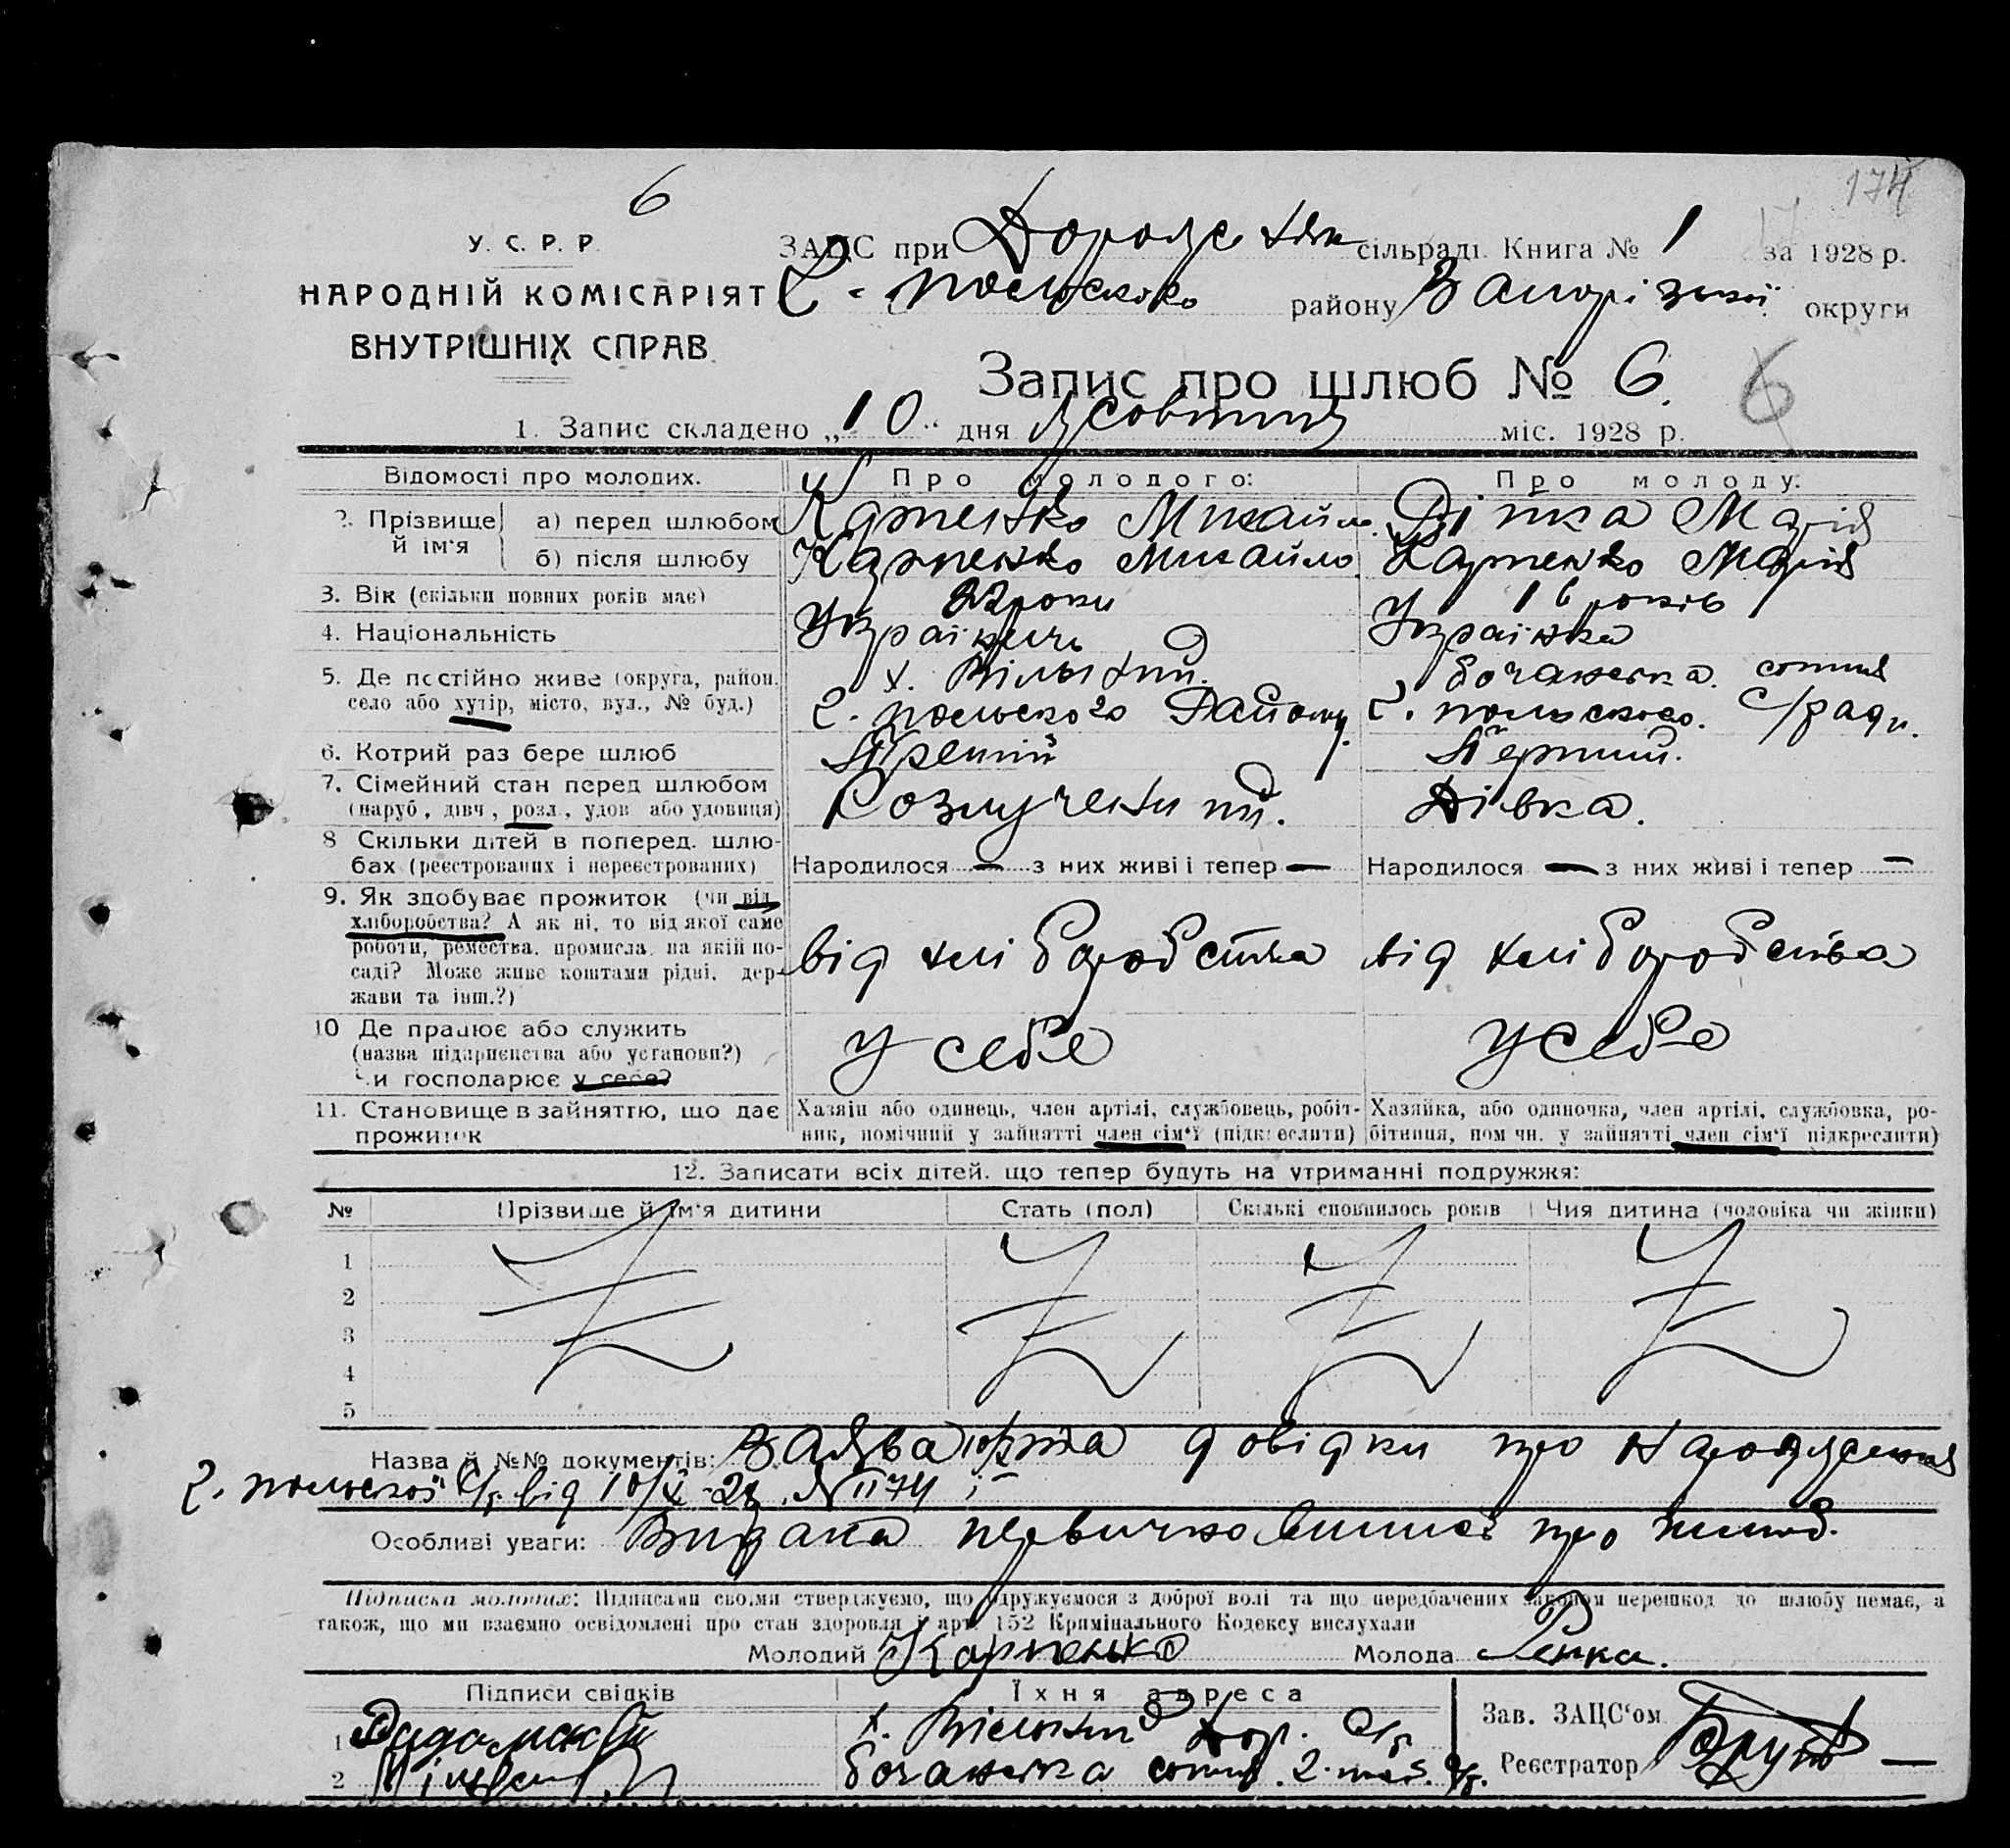 174
6
У. С. Р. Р.
НАРОДНІЙ КОМІСАРІЯТ
ВНУТРІШНІХ СПРАВ
ЗАЦС при сільраді Книга № 1 за 1928 р.
Г.-польского району Запорізької округи
Запис про шлюб № 6. 6
1. Запис складено „10“ дня жовтня міс. 1928 р.
Відомості про молодих. Про молодого: Про молоду:
2. Прізвище й ім'я а) перед шлюбом Карпенко Михайло Марія
б) після шлюбу Карпенко Михайло. Карпенко Марія
3. Вік (скільки повних років має) 22 роки 16 років
4. Національність Українець Українка
5. Де постійно живе (округа, район, х. Вільний. сотня
село або хутір, місто, вул., № буд.) Г. польского Району. Г. польского. С/ради.
6. Котрий раз бере шлюб Третій Перший.
7. Сімейний стан перед шлюбом
(паруб, дівч, розл., удов або удовиця) Розлучений. Дівка.
8 Скільки дітей в поперед. шлю-
бах (реєстрованих і нереєстрованих) Народилося — з них живі і тепер — Народилося — з них живі і тепер —
9. Як здобуває прожиток (чи від
хліборобства? А як ні, то від якої саме
роботи, ремества, промисла, на якій по-
саді? Може живе коштами рідні, дер-
жави та інш.?) від хліборобства від хліборобства
10 Де працює або служить
(назва підприємства або установи?)
Чи господарює у себе? у себе у себе
11. Становище в зайняттю, що дає
прожиток
Хазяїн або одинець, член артілі, службовець, робіт-
ник, помічний у зайнятті член сім'ї (підкреслити)
Хазяйка, або одиночка, член артілі, службовка, ро-
бітниця, пом чн. у зайнятті член сім'ї підкреслити)
12. Записати всіх дітей. що тепер будуть на утриманні подружжя:
№ Прізвище й ім'я дитини Стать (пол) Скількі сповнилось років Чия дитина (чоловіка чи жінки)
1
2
3
4
5
Назва й №№ документів: Заява та довідки про народження
Г. польской С/р. від 10/X-28 №1174
Особливі уваги: Видана первична виписъ про шлюб.
Підписка молодих: Підписами своїми стверджуємо, що одружуємося з доброї волі та що передбачених законом перешкод до шлюбу немає, а
також, що ми взаємно освідомлені про стан здоровля і арт. 152 Кримінального Кодексу вислухали
Молодий Карпенко Молода
Підписи свідків Їхня адреса
1 х. Вільний Дор. С/р Зав. ЗАЦС'ом
2 сотня. Г. пол. С/р. Реєстратор